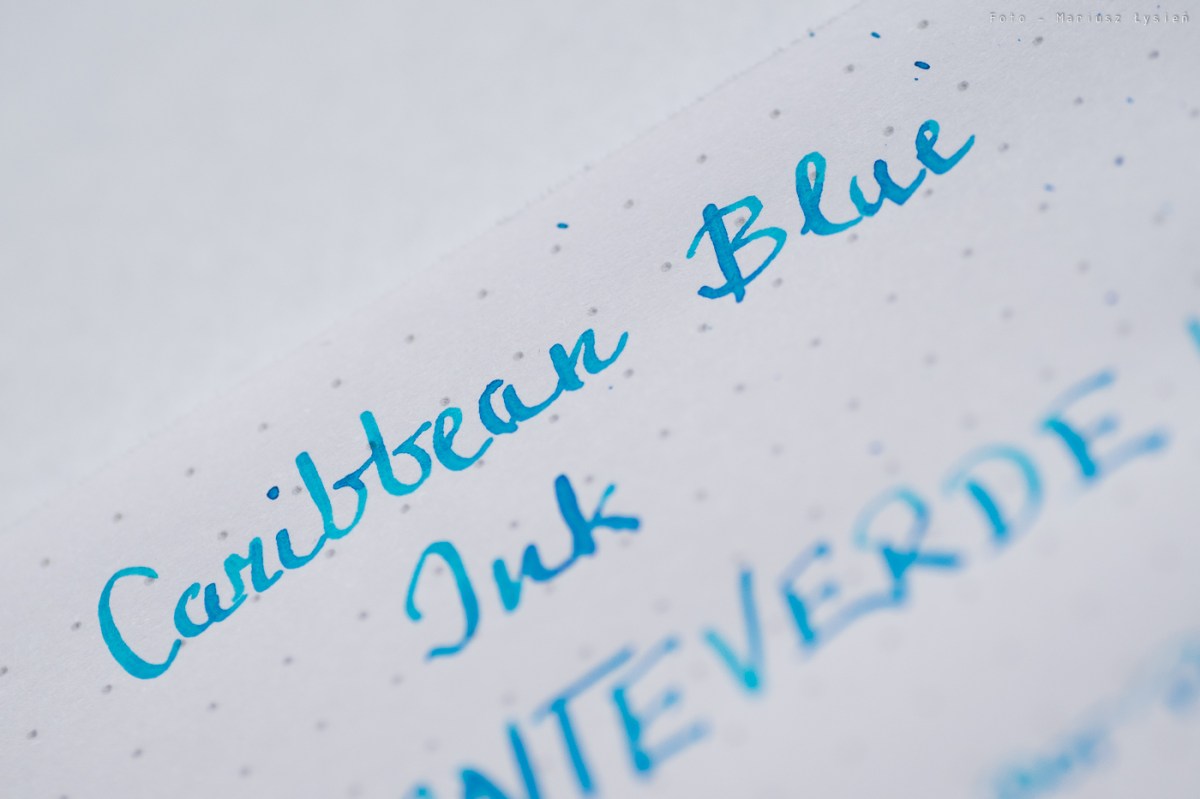 Foto - Mariusz Łysień
Caribbean Blue
Ink
NTEVERDE